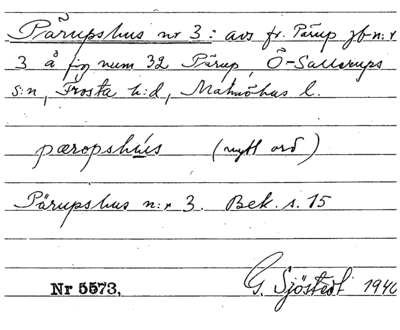 Pärupshus nr 3: avs fr. Pärup jb n:r
3 å fig num 32 Pärup, Ö-Sallerups
s:n, Frosta h:d, Malmöhus l.
pæropshús (nytt ord)
Pärupshus n:r 3. Bek. s. 15
Nr 5573, G. Sjöstedt 1940